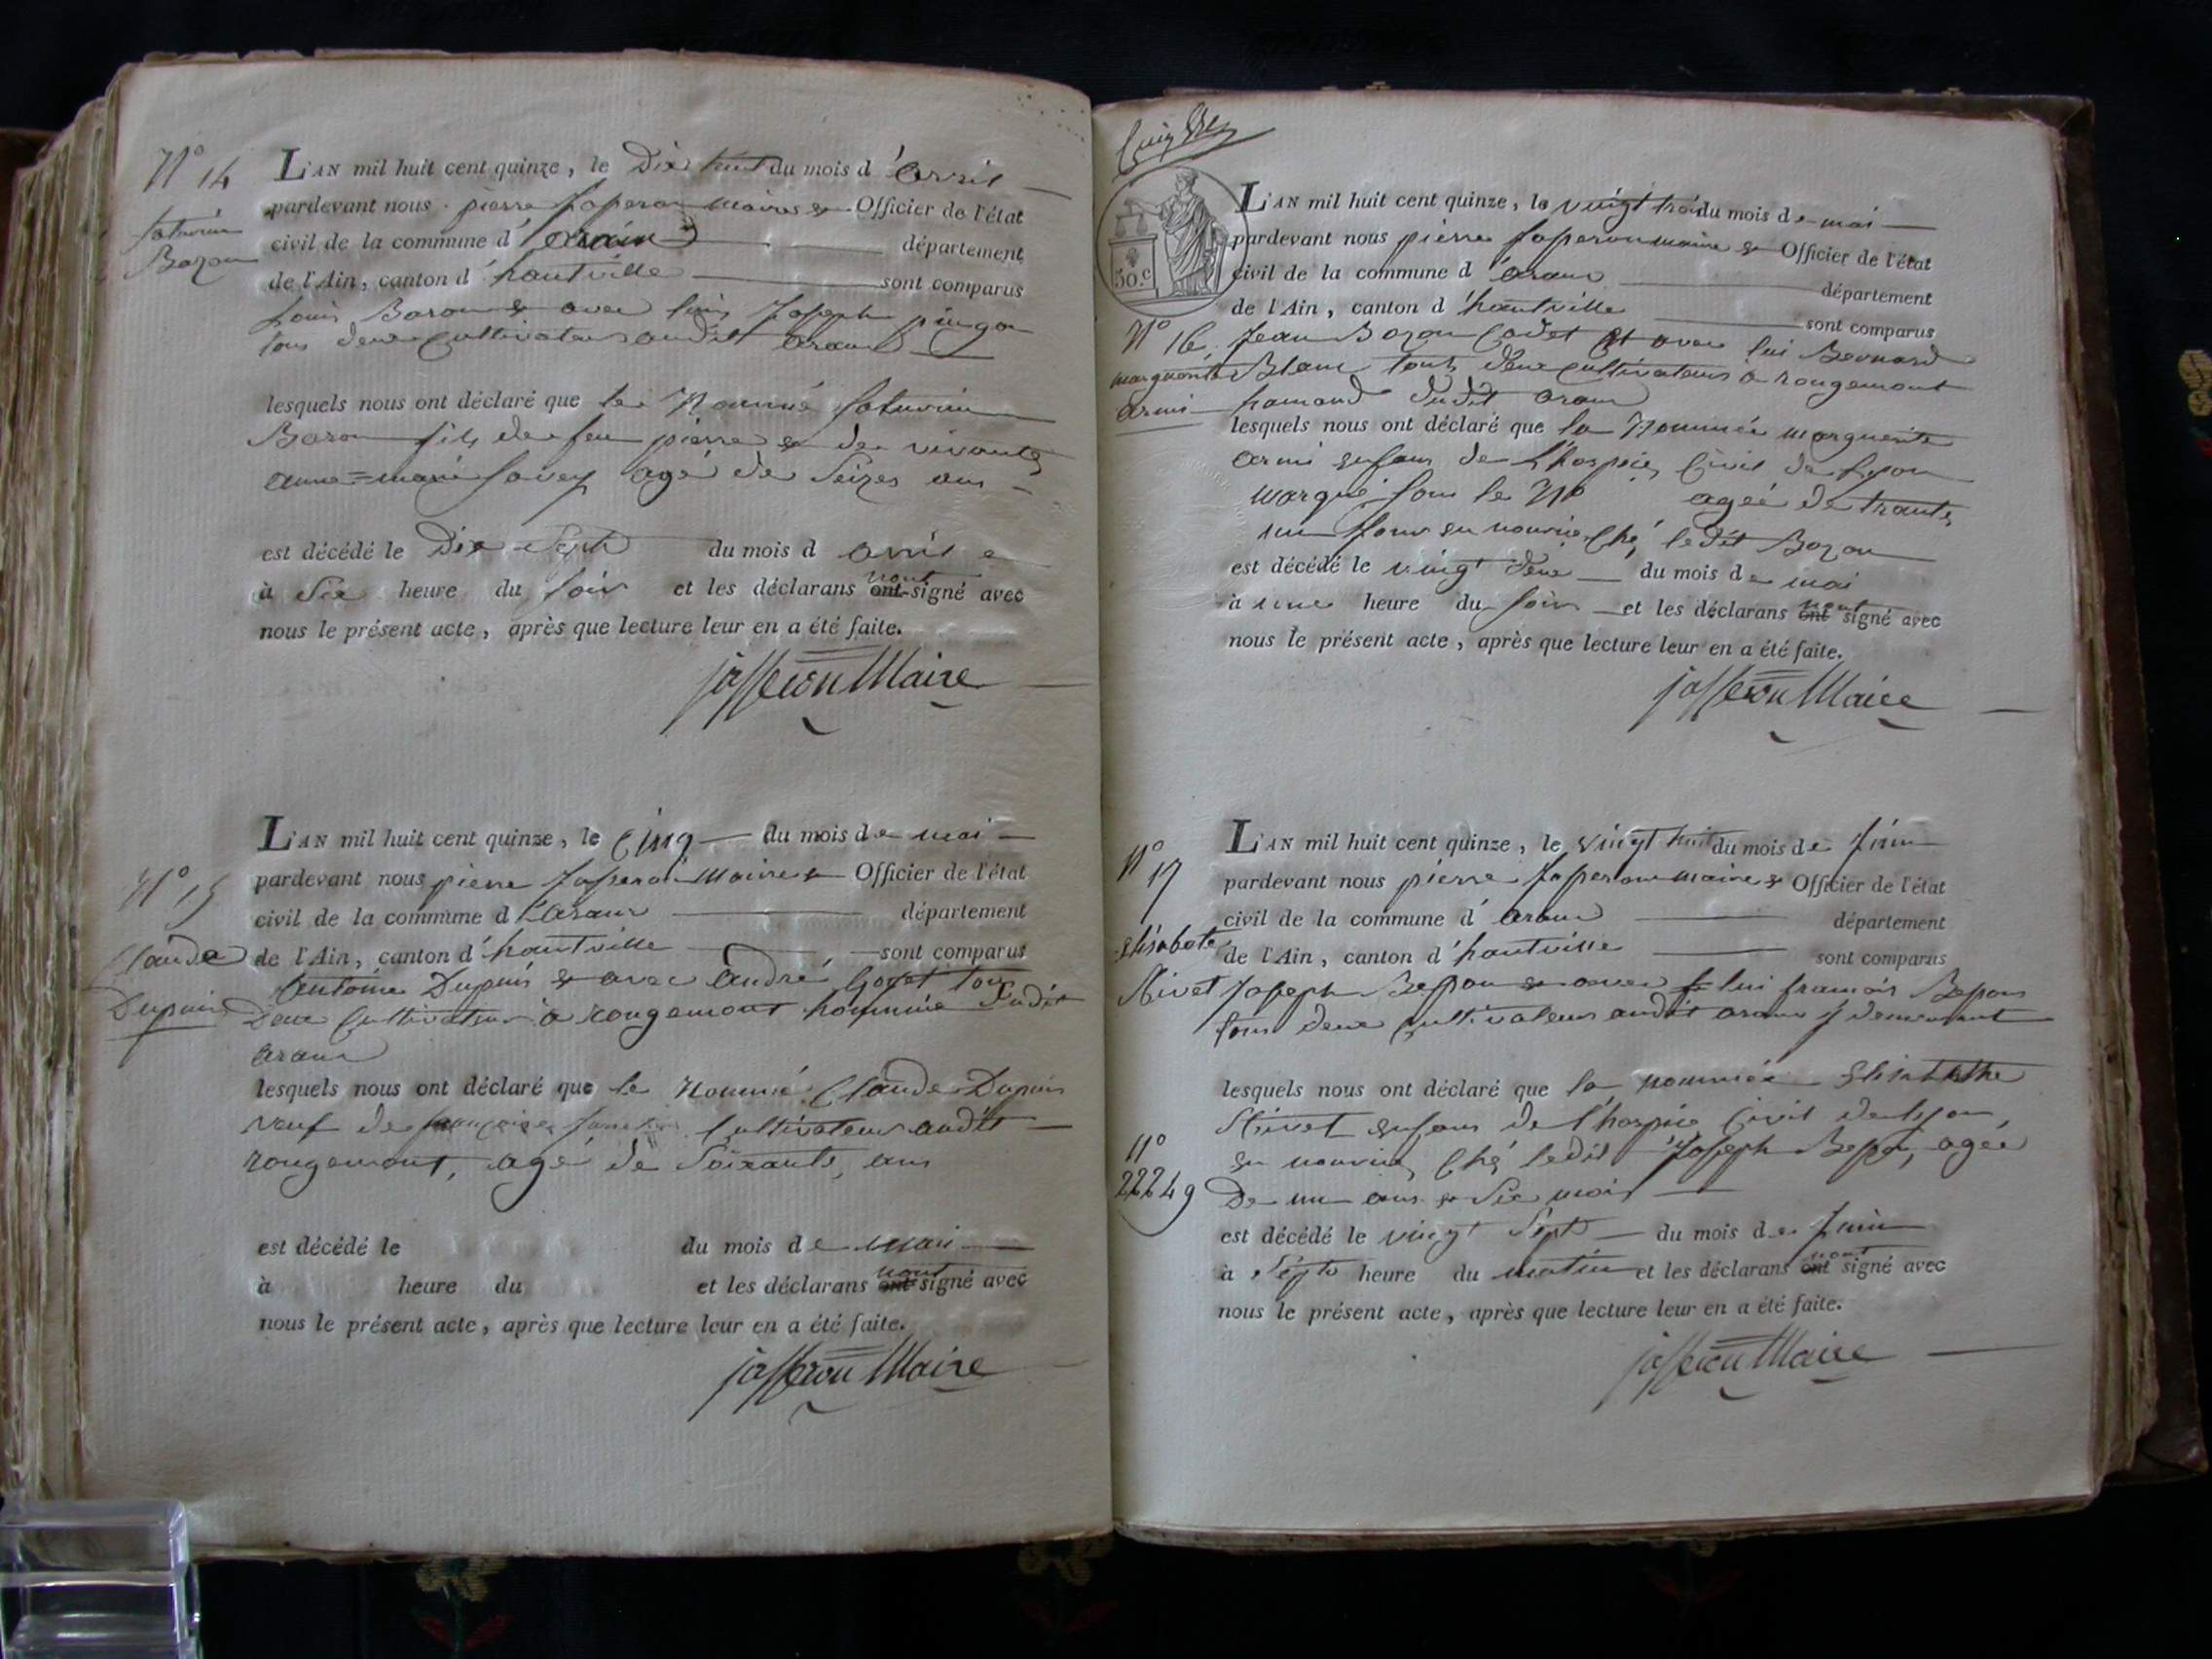 N° 14
Saturnin
Bozon
L'AN mil huit cent quinze, le Dix huit du mois d'Avril
pardevant nous pierre Jasperon maire & Officier de l'état
civil de la commune d' département
de l'Ain, canton d'hautville sont comparus
Louis Bozon & avec lui Joseph pingon
tous deux cultivateurs audit aranc
lesquels nous ont déclaré que le Nommé Saturnin
Bozon fils de feu pierre & de vivante
anne=marie Savey agé de Seizes ans
est décédé le Dix Sept du mois d avril
à Six heure du soir et les déclarans ont nont signé avec
nous le présent acte, après que lecture leur en a été faite.
jasseron Maire
N° 15
Claude
Dupuis
L'AN mil huit cent quinze, le Cinq du mois de mai
pardevant nous pierre Jasperon Maire & Officier de l'état
civil de la commune d'aranc département
de l'Ain, canton d'hautville sont comparus
Antoine Dupuis & avec andré tous
Deux Cultivateur à rougemont dudit
aranc
lesquels nous ont déclaré que le Nommé Claude Dupuis
veuf de françoise Cultivateur audit
rougemont, agé de Soixante ans
est décédé le du mois de mai
à heure du et les déclarans ont nont signé avec
nous le présent acte, après que lecture leur en a été faite.
jasseron Maire
30.c
L'AN mil huit cent quinze, le vingt trois du mois de mai
pardevant nous pierre Jasperon maire & Officier de l'état
civil de la commune d'aranc département
de l'Ain, canton d'hautville sont comparus
N° 16
marguerite
armi
Jean Bozon Cadet et avec lui Bernard
Blanc touts deux cultivateurs a rougemont
hamand dudit aranc
lesquels nous ont déclaré que la Nommée marguerite
armi enfans de L'hospice Civil de Lyon
marqué sous le N° agée de trante
un jour en nourice ché ledit Bozon
est décédé le vingt deux du mois de mai
à une heure du soir et les déclarans ont nont signé avec
nous le présent acte, après que lecture leur en a été faite.
jasseron Maire
N°
17
Elisabete
Nivet
L'AN mil huit cent quinze, le vingt huit du mois de Juin
pardevant nous pierre Jasperon maire & Officier de l'état
civil de la commune d'aranc département
de l'Ain, canton d'hautville sont comparus
Joseph Besson & avec lui francois Besson
tous deux cultivateurs audit aranc y demeurant
lesquels nous ont déclaré que la nommée Elisabethe
Nivet enfans de l'hospice Civil de lyon
N°
22249
en nourice ché ledit Joseph Besson, agée
De un ans & Six mois
est décédé le vingt Sept du mois de Juin
à Sept heure du matin et les déclarans ont nont signé avec
nous le présent acte, après que lecture leur en a été faite.
jasseron Maire